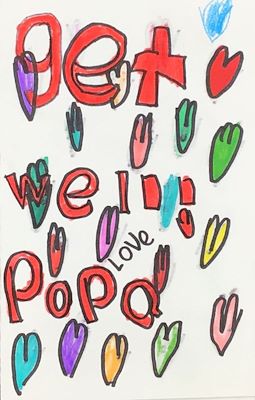 get
well!
Love
popa